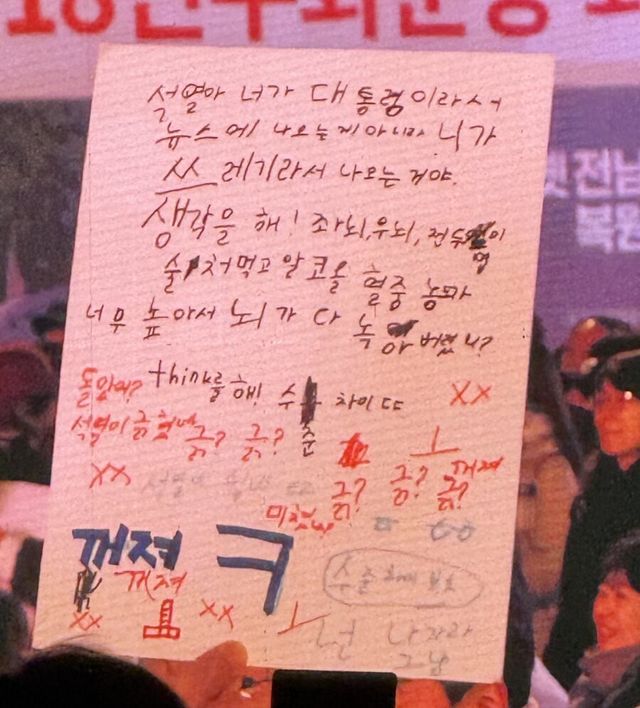 석열아 너가 대통령이라서
뉴스에 나오는게 아니라 니가
쓰레기라서 나오는 거야.
생각을 해! 좌뇌, 우뇌, 전두엽이
술 처먹고 알코올 혈중 농도가
너무 높아서 뇌가 다 녹아 버렸니?
think를 해! 수준 차이 ㄸㄸ
돌았어? XX
석열이 긁혔네 긁? 긁?
XX 긁? 긁? 긁? 꺼져
미쳤냐?
꺼져 ㅋ
꺼져
XX XX ㅗ
넌 나자라
그냥